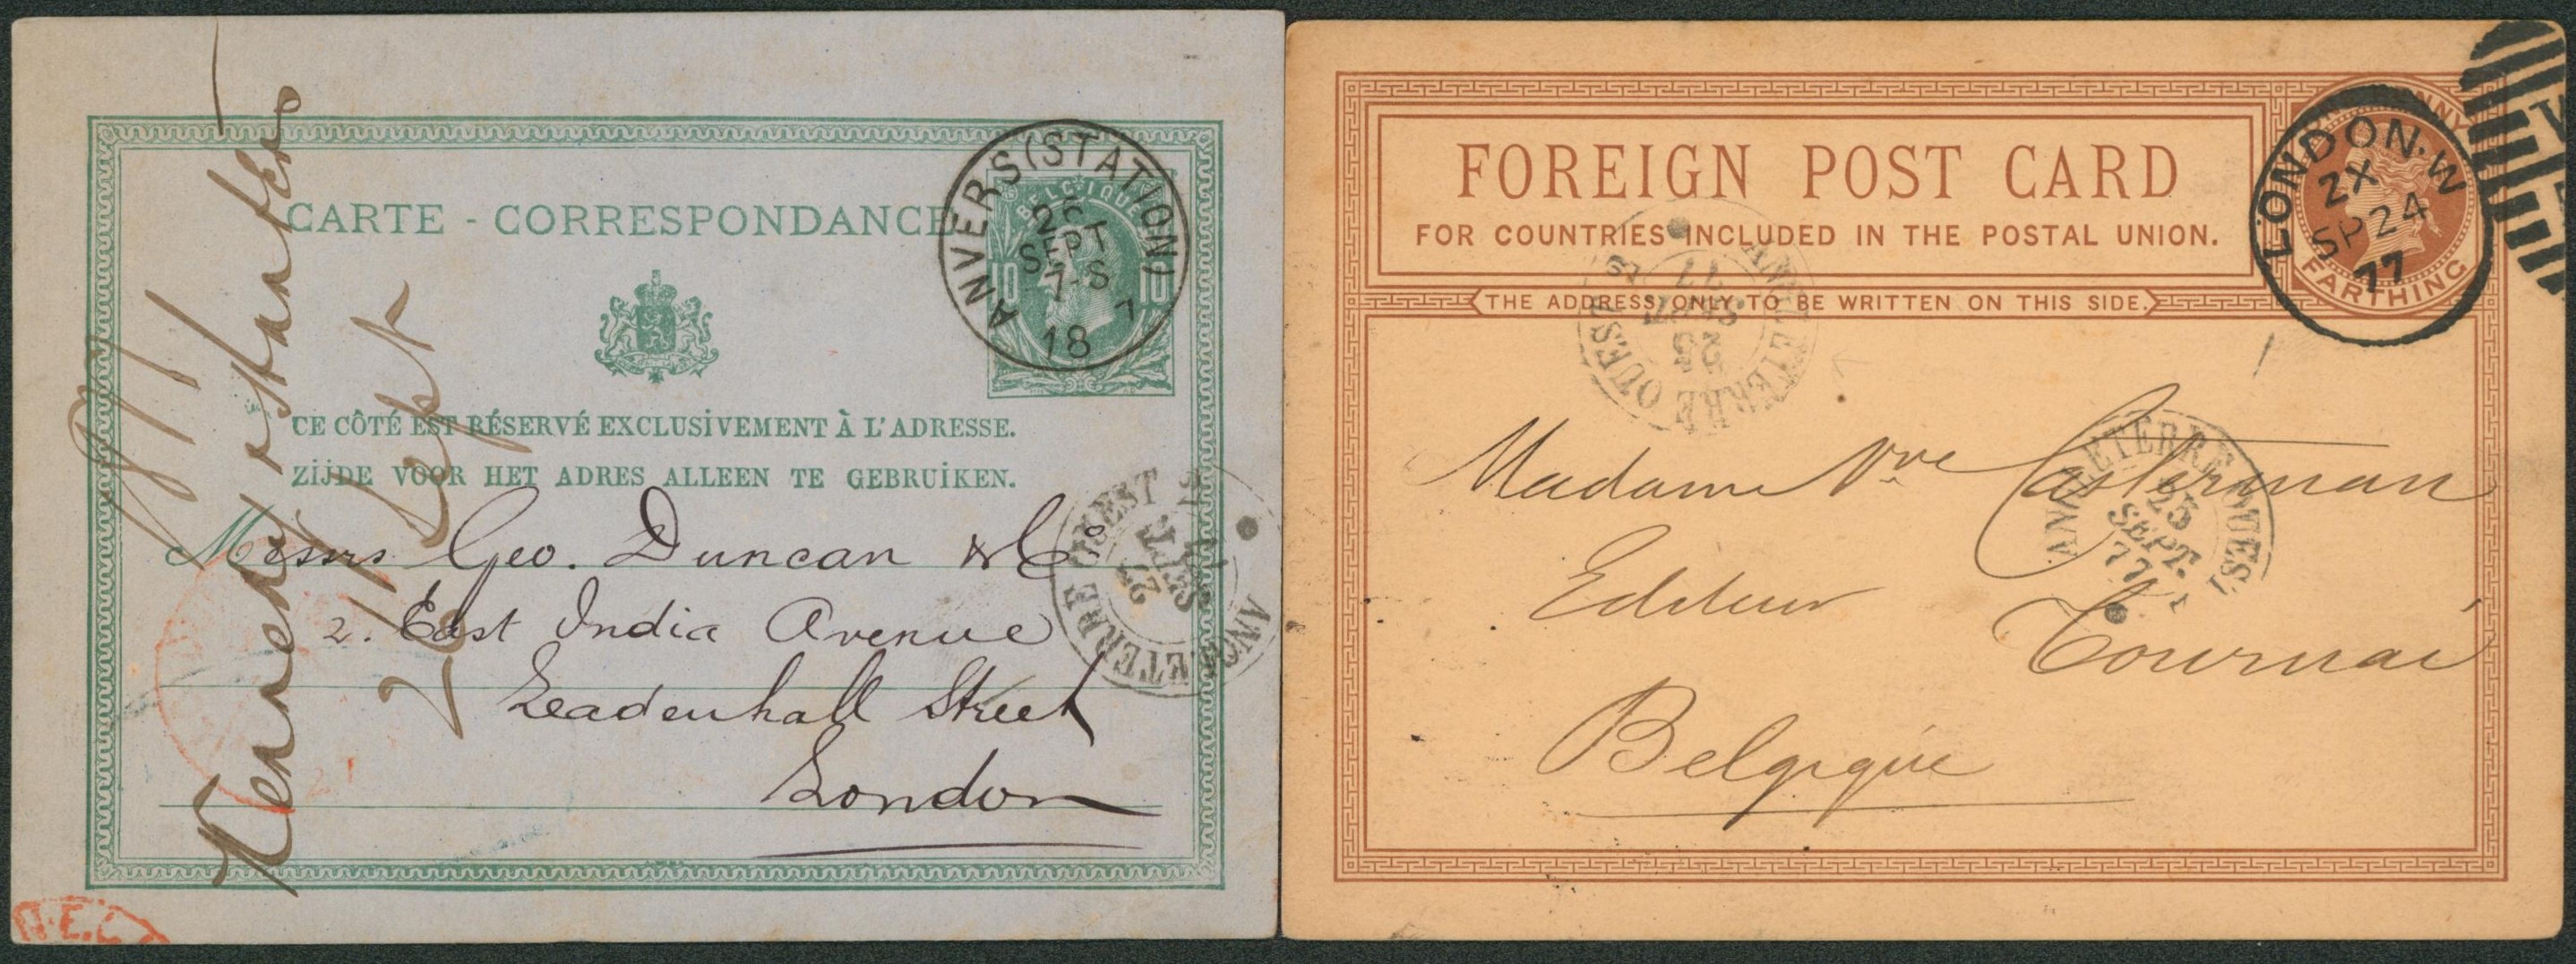 CARTE - CORRESPONDANCE
BELGIQUE
10 10
ANVERS (STATION)
SEPT
7-S
18 7
CE CÔTÉ EST RÉSERVÉ EXCLUSIVEMENT À L'ADRESSE.
ZIJDE VOOR HET ADRES ALLEEN TE GEBRUIKEN.
Messrs Geo. Duncan & Co
2. East India Avenue
Leadenhall Street
London
ANGLETERRE OUEST
SEPT.
26 Sept
FOREIGN POST CARD
FOR COUNTRIES INCLUDED IN THE POSTAL UNION.
THE ADDRESS ONLY TO BE WRITTEN ON THIS SIDE.
FARTHING
LONDON.W
ZX
SP24
77
ANGLETERRE OUEST
25
SEPT.
77
Madame Vve Casterman
Editeur
Tournai
Belgique
ANGLETERRE OUEST
25
SEPT.
77